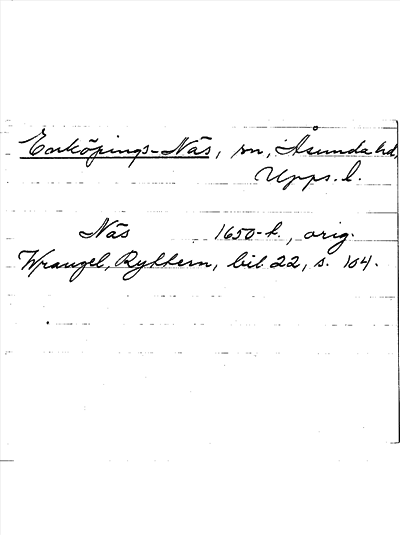 Enköpings-Näs, sn, Åsunda hd,
Upps. l.
Näs 1650-t., orig.
Wrangel, Rythtern, bil 22, s. 104.